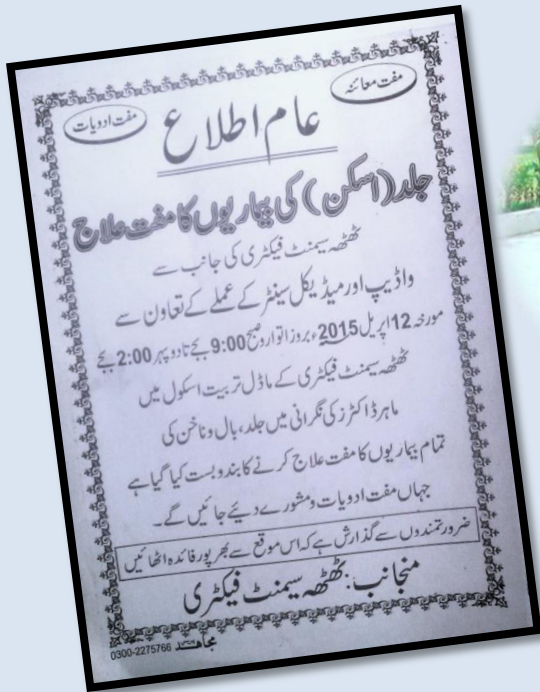 مفت معائنہ
مفت ادویات
عام اطلاع
جلد (اسکن) کی بیماریوں کا مفت علاج
ٹھٹھہ سیمنٹ فیکٹری کی جانب سے
واڈیپ اور میڈیکل سینٹر کے عملے کے تعاون سے
مورخہ 12 اپریل 2015ء بروز اتوار صبح 9:00 بجے تا دوپہر 2:00 بجے
ٹھٹھہ سیمنٹ فیکٹری کے ماڈل تربیت اسکول میں
ماہر ڈاکٹرز کی نگرانی میں جلد، بال و ناخن کی
تمام بیماریوں کا مفت علاج کرنے کا بندوبست کیا گیا ہے
جہاں مفت ادویات و مشورے دیئے جائیں گے۔
ضرورتمندوں سے گذارش ہے کہ اس موقع سے بھرپور فائدہ اٹھائیں
منجانب: ٹھٹھہ سیمنٹ فیکٹری
مجاہد 0300-2275766